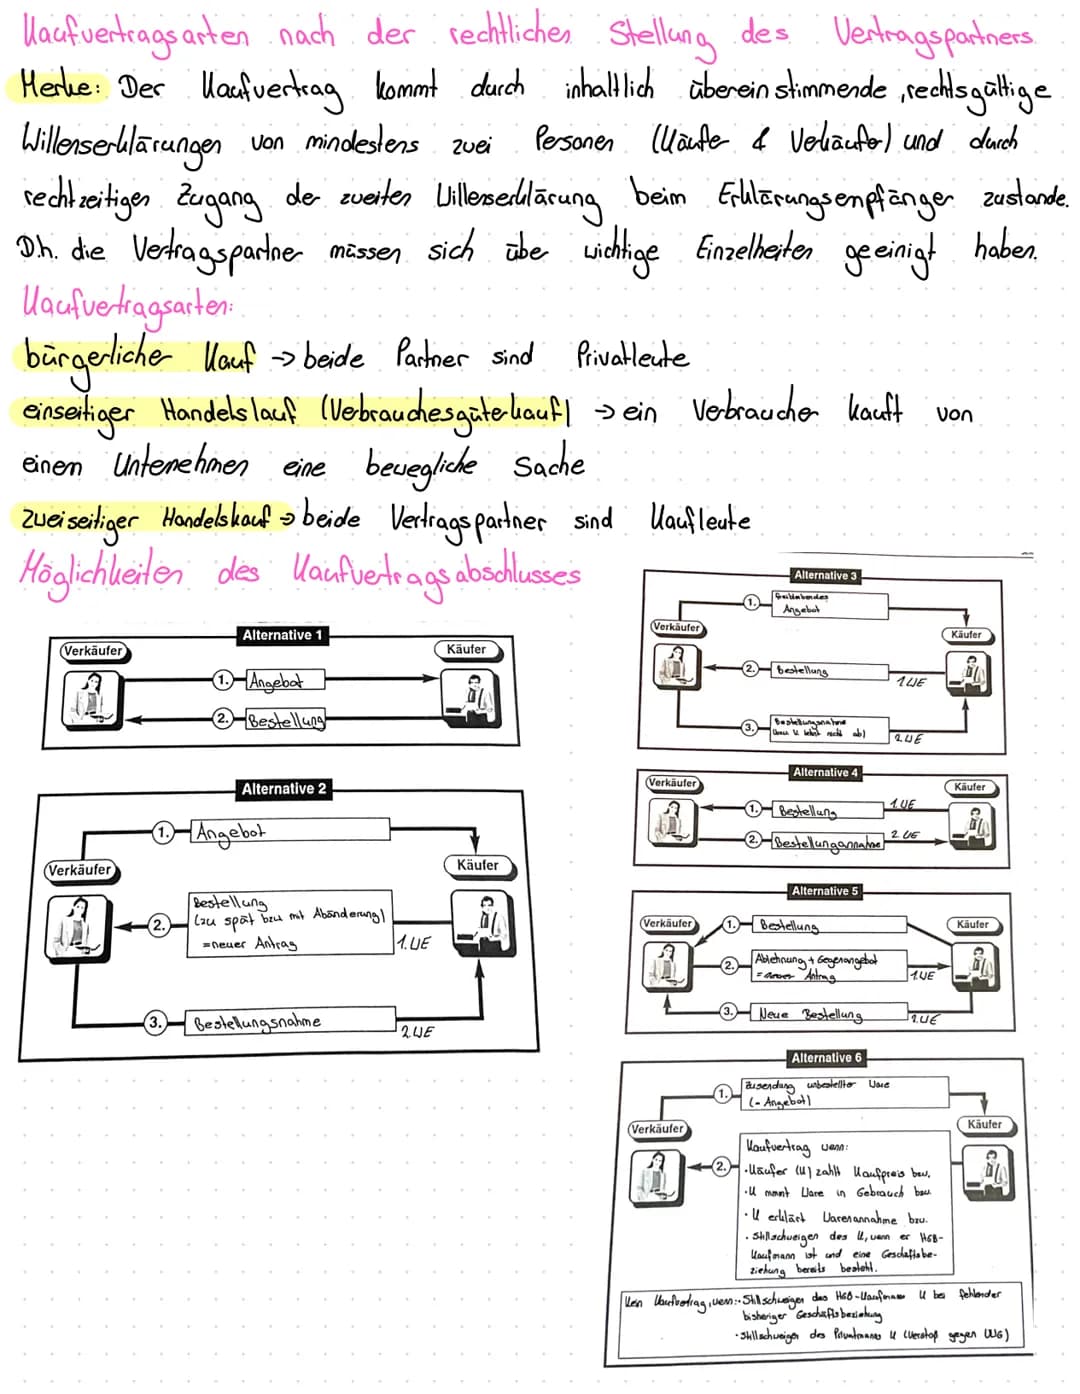 Kaufvertragsarten nach der rechtlichen Stellung des Vertragspartners
Merke: Der Kaufvertrag kommt durch inhaltlich übereinstimmende, rechtsgültige
Willenserklärungen von mindestens zwei Personen (Käufer & Verkäufer) und durch
rechtzeitigen Zugang der zweiten Willenserklärung beim Erklärungsempfänger zustande.
D.h. die Vertragspartner müssen sich über wichtige Einzelheiten geeinigt haben.
Kaufvertragsarten:
bürgerlicher Kauf → beide Partner sind Privatleute
einseitiger Handelskauf (Verbrauchesgüterkauf) → ein Verbraucher kauft von
einem Unternehmen eine bewegliche Sache
zweiseitiger Handelskauf → beide Vertragspartner sind Kaufleute
Möglichkeiten des Kaufvertragsabschlusses
Alternative 1
Verkäufer
Käufer
1. Angebot
2. Bestellung
Alternative 2
1. Angebot
Verkäufer
Käufer
Bestellung
2. (zu spät bzw mit Abänderung)
=neuer Antrag
1.WE
3. Bestellungsnahme
2.WE
Alternative 3
1.
Angebot
Verkäufer
Käufer
2. bestellung
1.WE
3. Bestellungsnahme
(wenn V. lehnt nicht ab)
2.WE
Alternative 4
Verkäufer
Käufer
1. Bestellung
1.WE
2. Bestellungannahme
2.WE
Alternative 5
Verkäufer
Käufer
1. Bestellung
2. Ablehnung + Gegenangebot
= neuer Antrag
1.WE
3. Neue Bestellung
2.WE
Alternative 6
1. Zusendung unbestellter Ware
(= Angebot)
Verkäufer
Käufer
2. Kaufvertrag wenn:
·Käufer (K) zahlt Kaufpreis bzw.
·K nimmt Ware in Gebrauch bzw.
·K erklärt Warenannahme bzw.
·Stillschweigen des K, wenn er HGB-
Kaufmann ist und eine Geschäftsbe-
ziehung bereits besteht.
Kein Kaufvertrag, wenn:·Stillschweigen des HGB-Kaufmanns K bei fehlender
bisheriger Geschäftsbeziehung
·Stillschweigen des Privatmanns K (Verstoß gegen UWG)